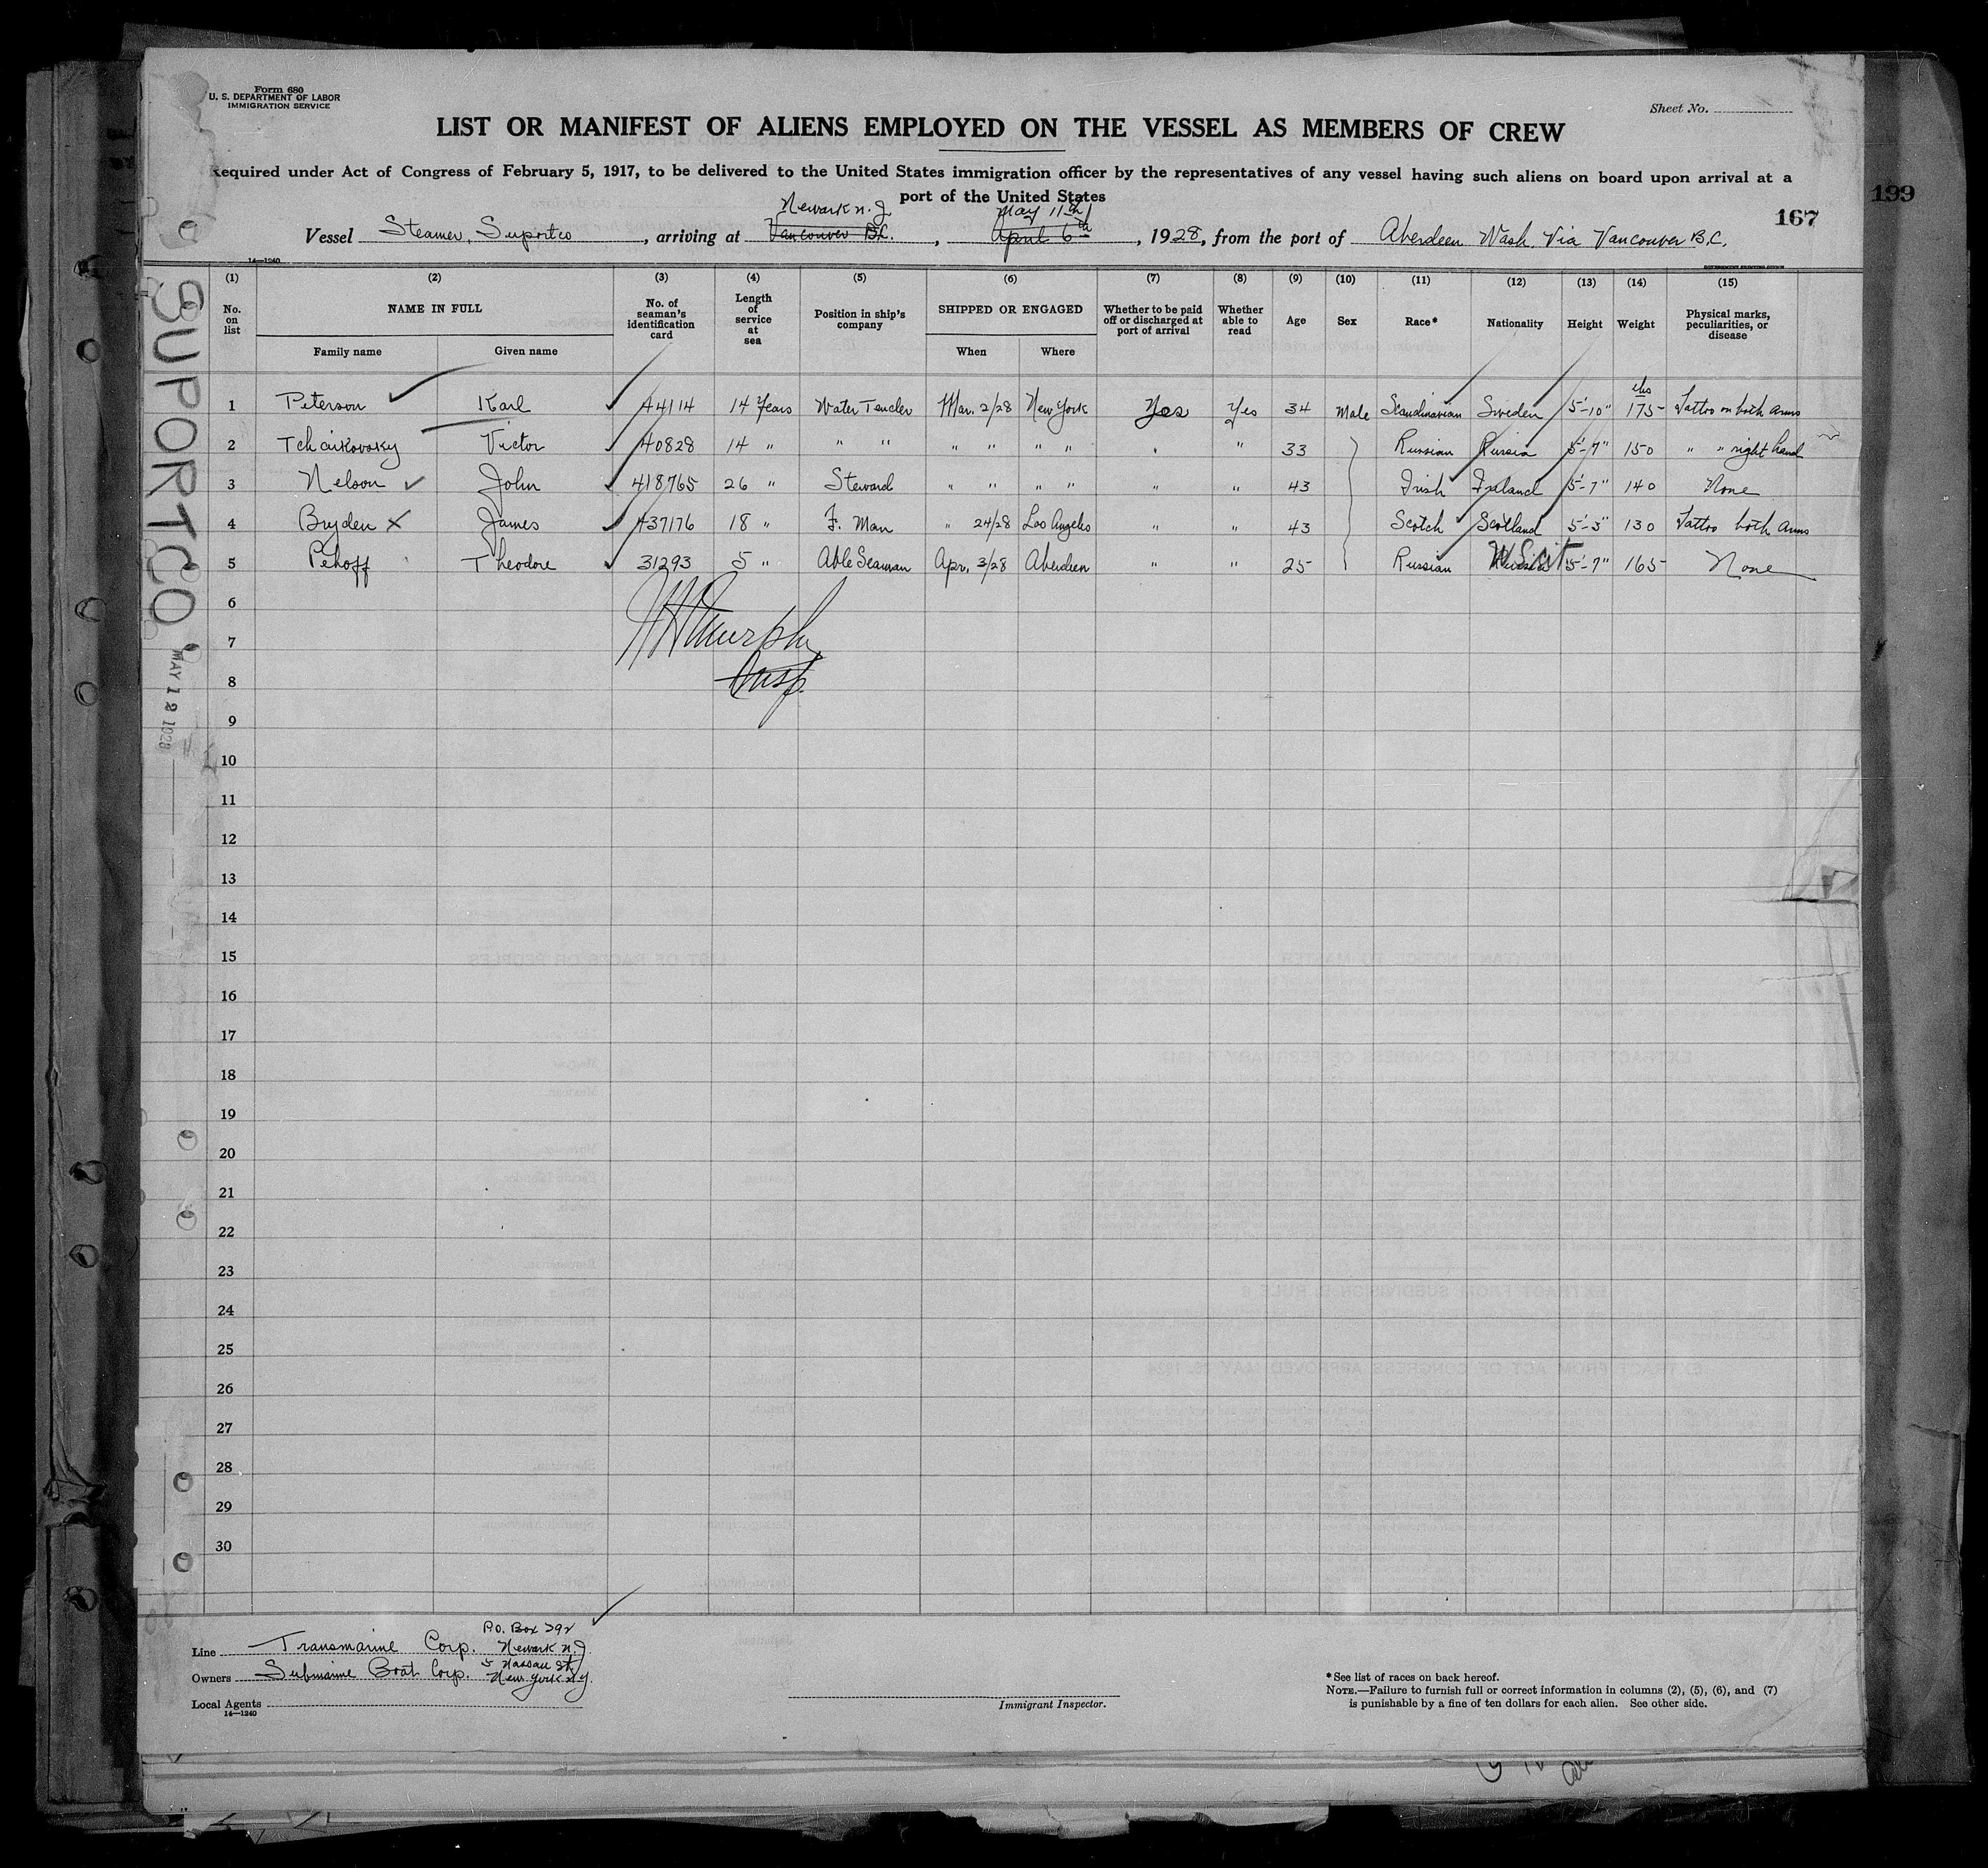 Form 680
U. S. DEPARTMENT OF LABOR
IMMIGRATION SERVICE
Sheet No.
LIST OR MANIFEST OF ALIENS EMPLOYED ON THE VESSEL AS MEMBERS OF CREW
Required under Act of Congress of February 5, 1917, to be delivered to the United States immigration officer by the representatives of any vessel having such aliens on board upon arrival at a
port of the United States
199
167
Newark N.J. May 11th
Vessel Steamer, Suportco, arriving at Vancouver B.C., April 6th, 1928, from the port of Aberdeen Wash. Via Vancouver B.C.
14—1240
GOVERNMENT PRINTING OFFICE
(1) (2) (3) (4) (5) (6) (7) (8) (9) (10) (11) (12) (13) (14) (15)
No. on list NAME IN FULL No. of seaman's identification card Length of service at sea Position in ship's company SHIPPED OR ENGAGED Whether to be paid off or discharged at port of arrival Whether able to read Age Sex Race* Nationality Height Weight Physical marks, peculiarities, or disease
Family name Given name When Where
1 Peterson Karl 44114 14 Years Water Tender Mar. 2/28 New York Yes Yes 34 Male Scandinavian Sweden 5'-10" lbs 175 Tattoo on both arms
2 Tchaikovsky Victor 40828 14 " " " " " " " " " 33 Russian Russia 5'-7" 150 " " right hand
3 Nelson John 418765 26 " Steward " " " " " " 43 Irish Ireland 5'-7" 140 None
4 Bryden James 437176 18 " F. Man " 24/28 Los Angeles " " 43 Scotch Scotland 5'-3" 130 Tattoo both arms
5 Pehoff Theodore 31293 5 " Able Seaman Apr. 3/28 Aberdeen " " 25 Russian 5'-7" 165 None
6
7
8
Murphy
Insp.
9
10
11
12
13
14
15
16
17
18
19
20
21
22
23
24
25
26
27
28
29
30
SUPORTCO
MAY 12 1928
P.O. Box 792
Line Transmarine Corp. Newark N.J.
5 Nassau St.
Owners Submarine Boat Corp. New York N.Y.
Local Agents
14—1240
Immigrant Inspector.
*See list of races on back hereof.
NOTE.—Failure to furnish full or correct information in columns (2), (5), (6), and (7)
is punishable by a fine of ten dollars for each alien. See other side.